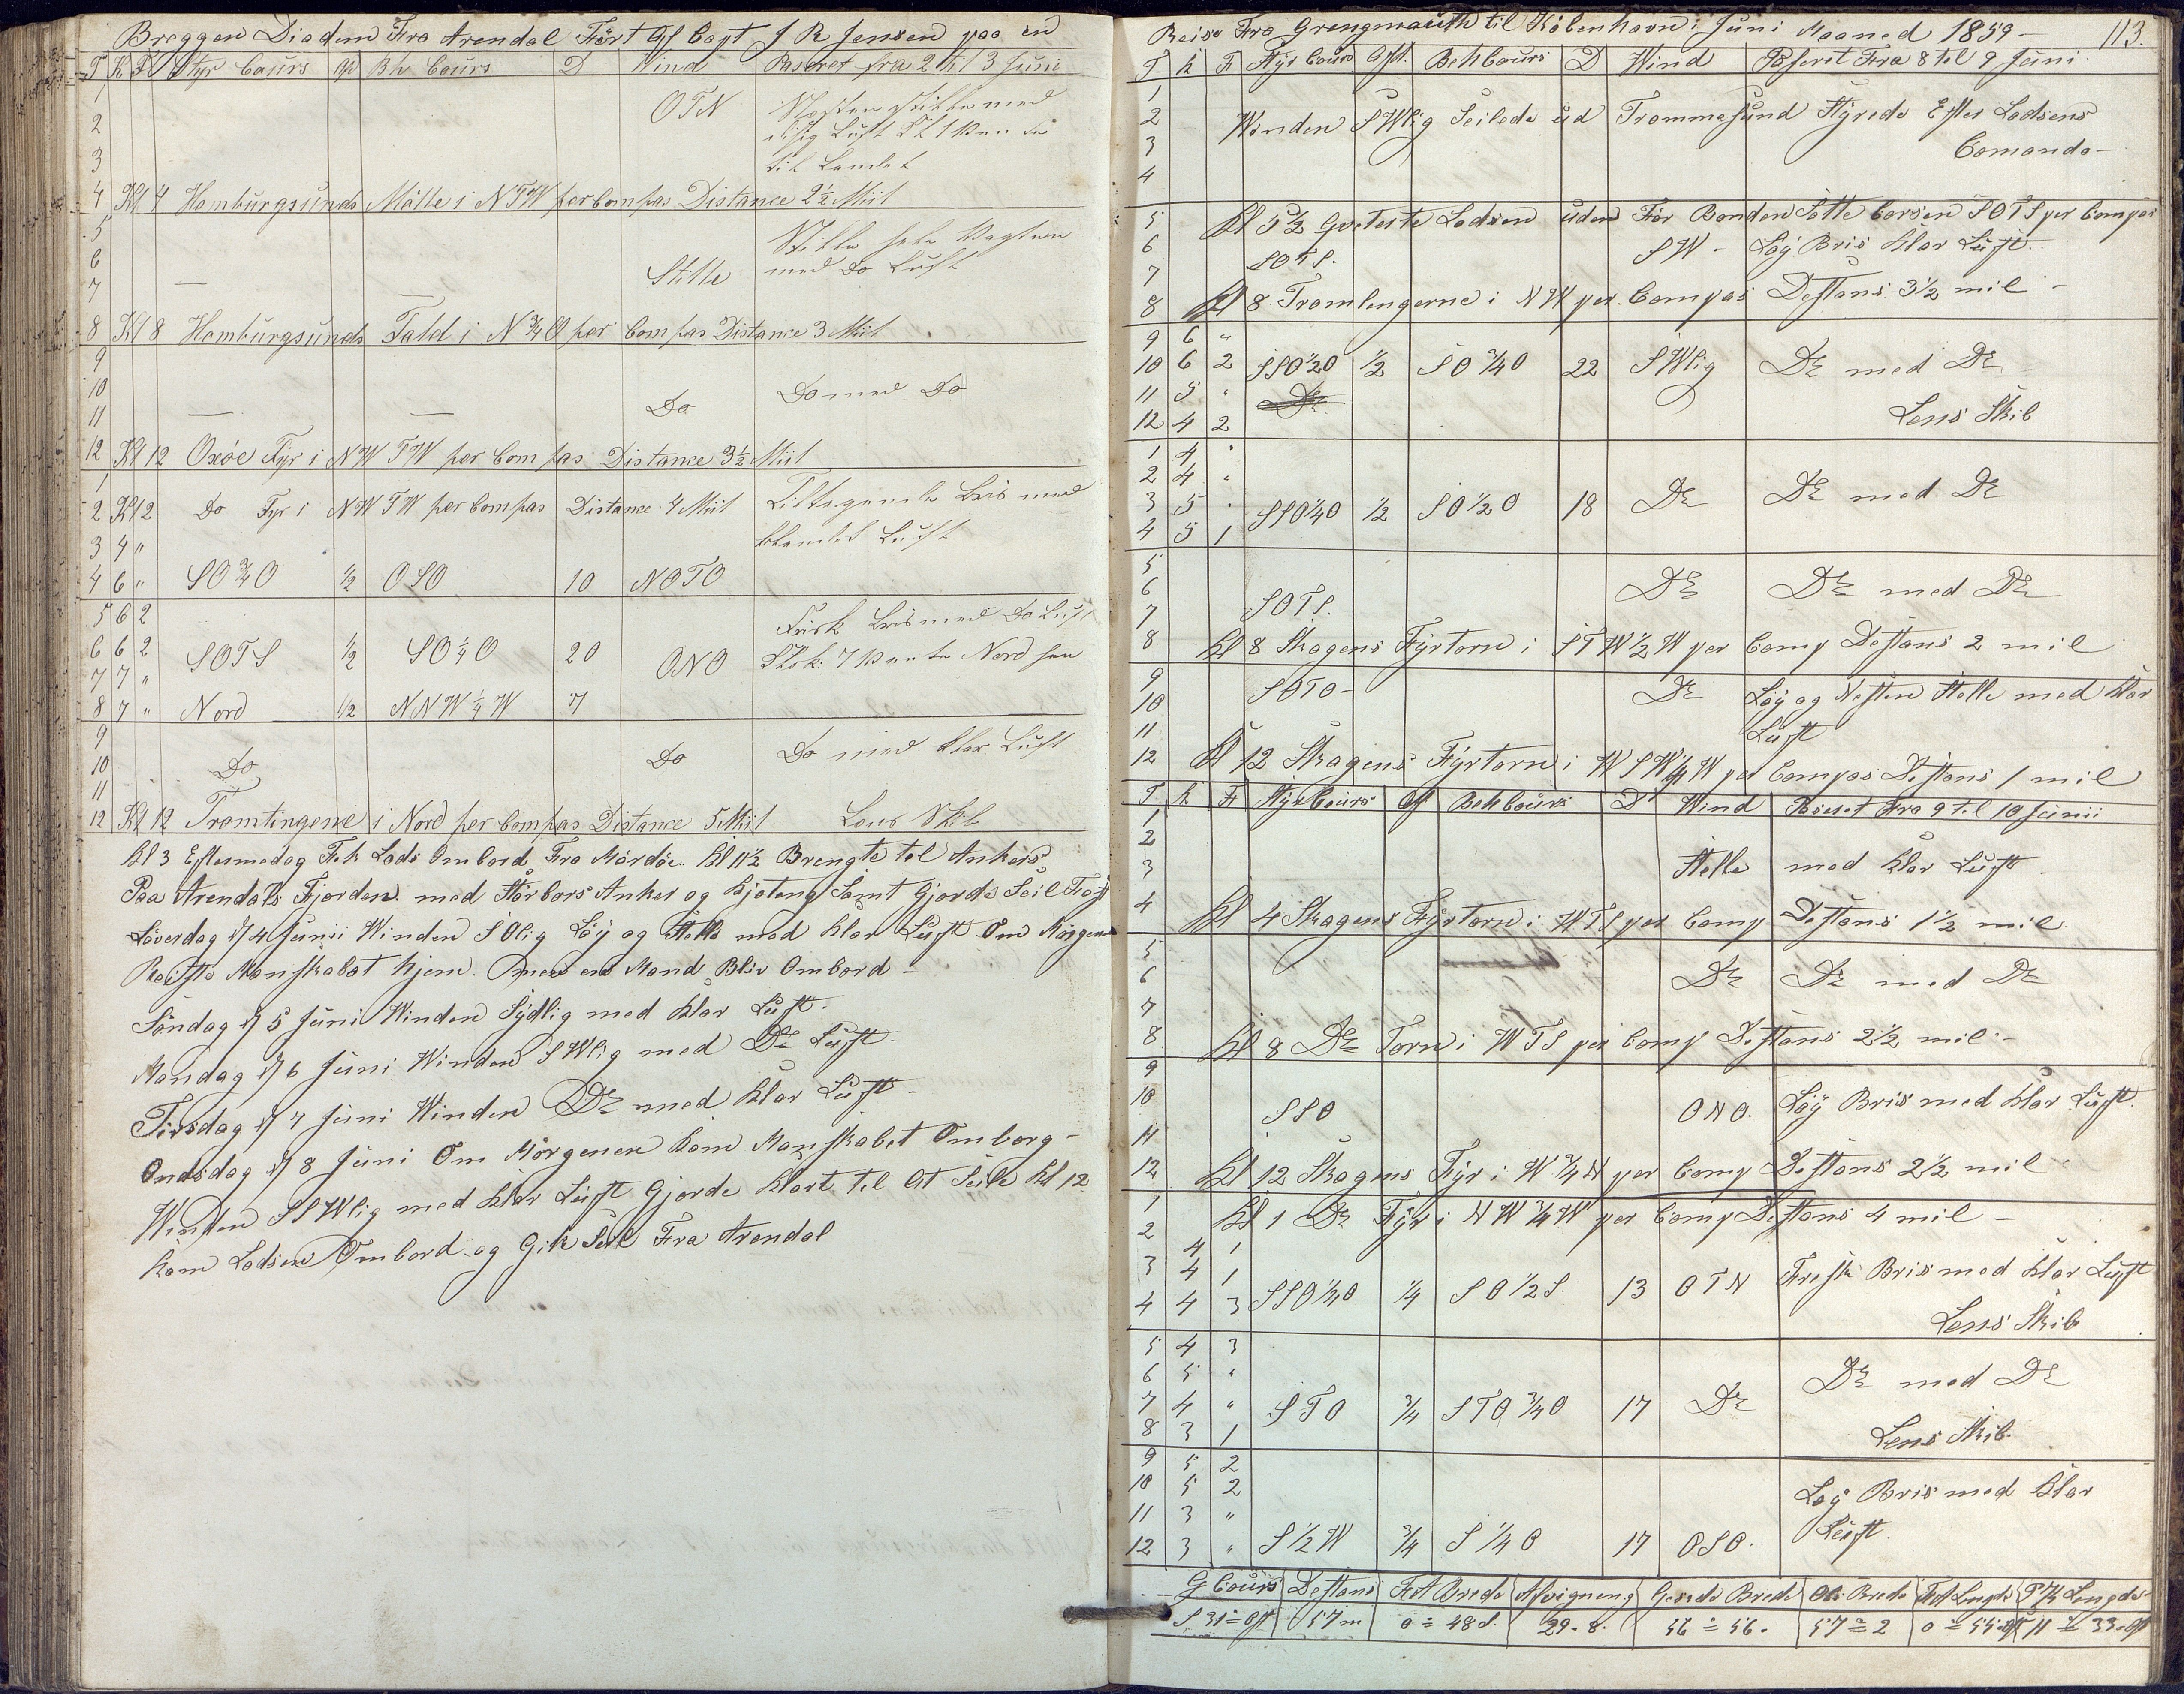 Breggen Diadem Fra Arendal Fört Af Capt J R Jensen paa en
T K F Styr Cours Af Beh Cours D Wind Paseret fra 2 til 3 Juni
1
2 OTN Næsten Stille med
3
til Landet
4 Kl 4 Hamburgsunds Mölle i NTW per Compas Distance 2½ Miil
5 Stille hele Vagten
6 Stille med Do Luft
7
8 Kl 8 Hamburgsunds Tald i N¾O per Compas Distance 3 Miil
9
10 Do Do med Do
11
12 Kl 12 Oxöe Fyr i NWTW per Compas Distance 3½ Miil
1
2 Kl 2 Do Fyr i NWTW per Compas Distance 4 Miil Tiltagende Bris med
3 4 " Luft
4 6 " SO¾O ½ OSO 10 NOTO
5 6 2 Frisk Bris med Do Luft
6 6 2 SOTS ½ SO¼O 20 ONO
7 7 "
8 7 " Nord ½ NNW¼W 7
9
10 Do Do Do med klar Luft
11
12 Kl 12 Tromlingene i Nord per Compas Distance 5 Miil Lens Skib
Kl 3 Eftermedag Fik Lods Ombord Fra Mærdöe. Kl 11½ Brengte til Ankers
Paa Arendals Fjorden med Störbors Anker og Kjeteng Samt Gjorde Seil Fast
Löverdag d 4 Junii Winden SOlig Löy og Stelle med klar Luft Om Morgenen
Reiste Manskabet hjem. men en Mand Bliv Ombord –
Söndag d 5 Juni Winden Sydlig med klar Luft.
Mandag d 6 Juni Winden SWlig med Do Luft
Tirsdag d 7 Juni Winden Do med klar Luft –
Ondsdag d 8 Juni Om Morgenen kom Manskabet Omborg –
Winden SSWlig med klar Luft Gjorde klart til At Seile Kl 12
kom Lodsen Ombord og Gik Seil Fra Arendal
Reise Fra Grengmauth til Köbenhavn i Juni Maaned 1859 – 113.
T. K F Styr Cours Aft. Beh Cours D Wind Paserit Fra 8 til 9 Juni
1
2 Winden SWlig Seilede ud Trommesund Styrede Efter Lodsens
3 Comando –
4
5 Kl 5½ Qveterte Lodsen uden For Banden Satte Corsen SOTS per Compas
6 SOTS. SW – Löy Bris klar Luft.
7
8 Kl 8 Tromlengerne i NW per Compas Destans 3½ mil –
9 6 "
10 6 2 SSO½O ½ SO¾O 22 SWlig Do med Do
11 5 " Do
12 4 2 Lens Skib
1 4 "
2 4 "
3 5 " SSO¼O ½ SO½O 18 Do Do med Do
4 5 1
5
6 Do Do med Do
7 SOTS.
8 Kl 8 Skagens Fyrtorn i STW½W per Comp Destans 2 mil
9 SOTO – Do Löy og Nesten Stelle med klar
10
11 Luft
12 Kl 12 Skagens Fyrtorn i WSW¼W per Compas Destans 1 mil
T K F Styr Cours Af Beh Cours D Wind Paseret Fra 9 til 10 Junii
1
2
3 Stelle med klar Luft
4 Kl 4 Skagens Fyrtorn i WTS per Comp Destans 1½ mil
5
6 Do Do med Do
7
8 Kl 8 Do Torn i WTS per Comp Destans 2½ mil –
9
10 SSO ONO. Löy Bris med klar Luft.
11
12 Kl 12 Skagens Fyr i W¾N per Comp Destans 2½ mil
1 Kl 1 Do Fyr i NW¼W per Comp Destans 4 mil –
2 4 1
3 4 1 Fresk Bris med klar Luft
4 4 3 SSO¼O ¼ SO½S. 13 OTN Lens Skib
5 4 3
6 5 " Do med Do
7 4 " STO ¾ STO¾O 17 Do
8 3 1 Lens Skib.
9 5 2
10 5 2 Löy Bris med klar
11 3 "
12 3 " S½W ¾ S¼O 17 OSO. Luft.
G Cours Destans Fot Brede Afvigneng Gesede Brede Obs Brede Fot Lengde Lengde
S 31° Ost 57 m 0° 48 S. 29.8. 56° 56. 57° 2